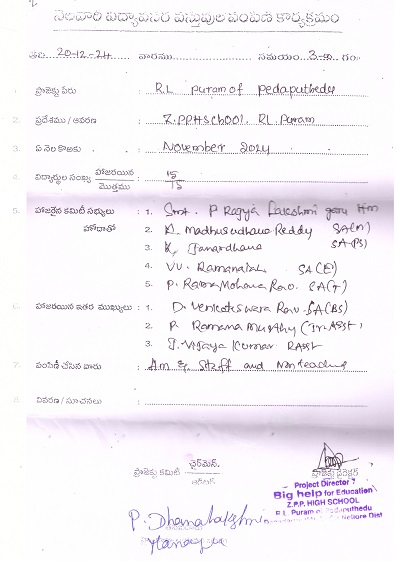 నెలవారీ విద్యావసర వస్తువుల పంపిణీ కార్యక్రమం
తేది 20-12-24 వారము సమయం 3-00 గం
1. ప్రాజెక్టు పేరు : R.L puram of pedaputhedu
2. ప్రదేశము / ఆవరణ : Z.PPHSchool. RL Puram
3. ఏ నెల కొఱకు : November 2024
4. విద్యార్థుల సంఖ్య హాజరయిన / మొత్తము : 15 / 15
5. హాజరైన కమిటీ సభ్యులు : 1. Smt. P Ragya Lakshmi garu Hm
హోదాతో 2. D. Madhusudhana Reddy SA(M)
3. K. Janardhana SA(PS)
4. VV. Ramanaiah SA(E)
5. P. Rama Mohana Rao. SA(T)
6. హాజరయిన ఇతర ముఖ్యులు : 1. D. Venkateswara Rao SA(BS)
2. P. Ramana Murthy (Jr Asst)
3. J. Vijaya Kumar RASST
7. పంపిణీ చేసిన వారు : Hm & Staff and Nonteaching
8. వివరణ / సూచనలు :
ప్రాజెక్టు కమిటీ చైర్మెన్.
ప్రాజెక్టు డైరెక్టర్
Project Director
Big help for Education
Z.P.P. HIGH SCHOOL
R.L. Puram of Pedaputhedu
Nellore Dist
P. Dhanalakshmi